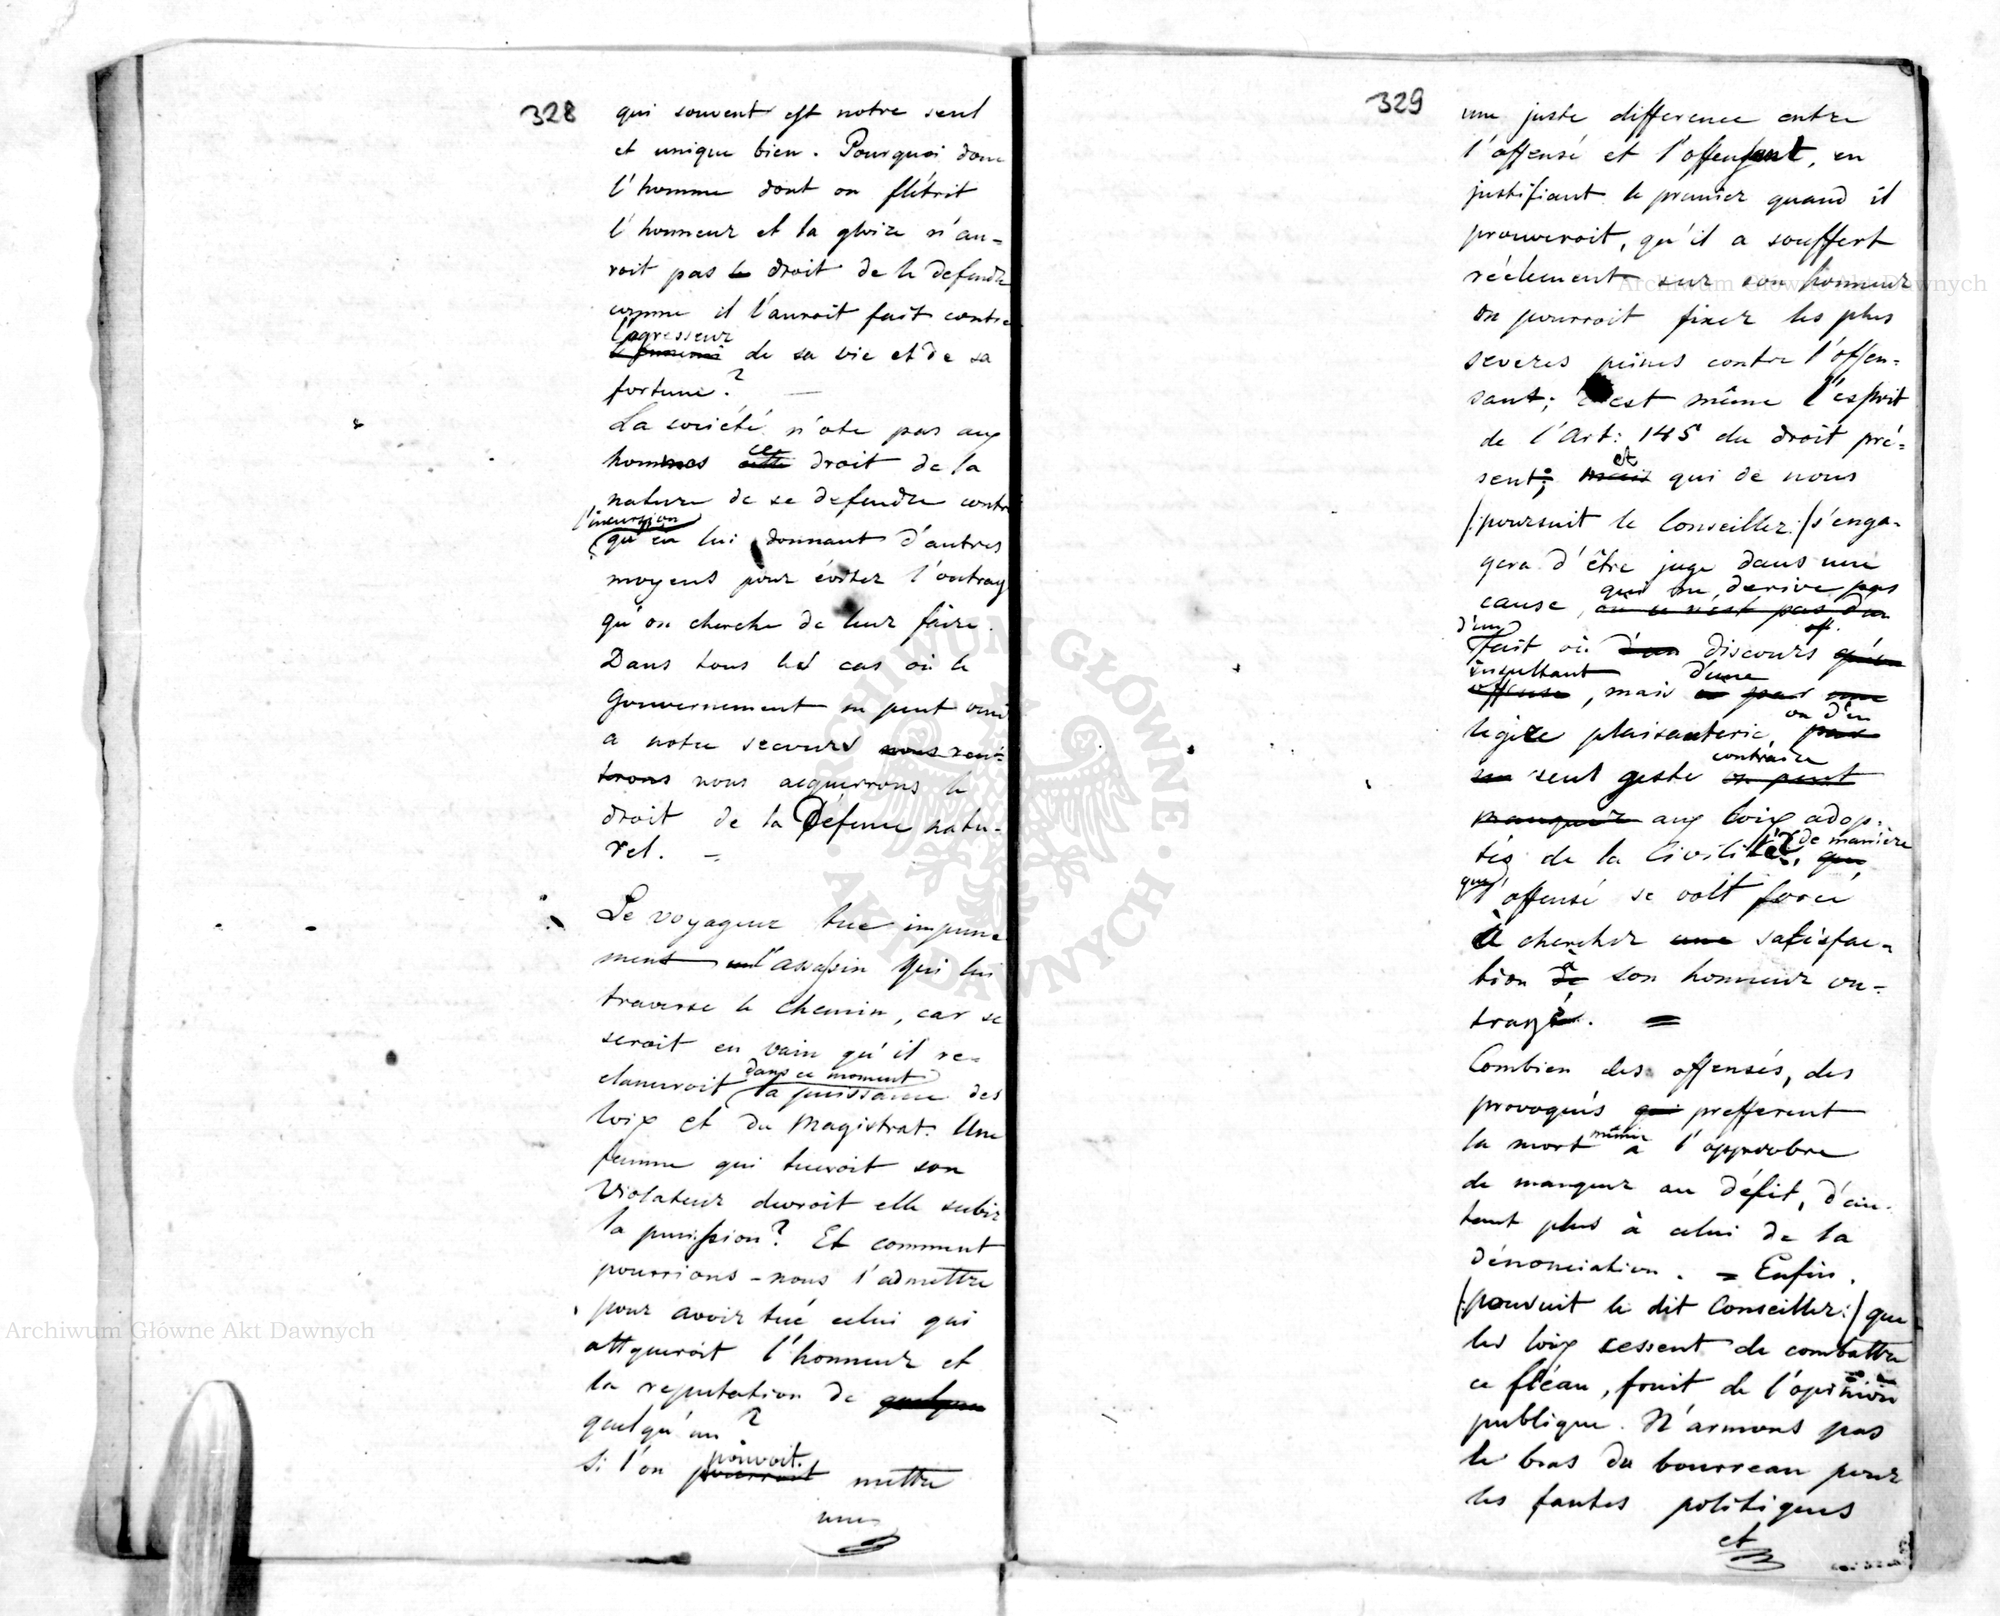 328
qui souvent est notre seul
et unique bien. Pourquoi donc
l'homme dont on flétrit
l'honneur et la gloire n'au=
roit pas le droit de le defendre
comme il l'auroit fait contre
l'agresseur
de sa vie et de sa
fortune? —
La société n'ote pas aux
hommes cette ce droit de la
nature de se defendre contre
l'incursion
qu'en lui donnant d'autres
moyens pour éviter l'outrage
qu'on cherche de leur faire.
Dans tous les cas où le
Gouvernement ne peut venir
a notre secours nous ren=
trons nous acquerrons le
droit de la Défense natu-
rel. —
Le voyageur tue impune
ment l'assassin qui lui
traverse le chemin, car se
seroit en vain qu'il re=
clameroit dans ce moment
la puissance des
loix et du Magistrat. Une
femme qui tueroit son
Violateur devroit elle subir
la punission? Et comment
pourrions-nous l'admettre
pour avoir tué celui qui
attqueroit l'honneur et
la reputation de quelque
quelqu'un?
Si l'on pourroit pouvoit mettre
une
329
une juste difference entre
l'offensé et l'offensent, en
justifiant le premier quand il
prouveroit, qu'il a souffert
réelement sur son honneur
on pourroit fixer les plus
severes peines contre l'offen=
sant; c'est même l'esprit
de l'Art: 145 du droit pré=
sent; mais et qui de nous
/:poursuit le Conseiller:/ s'enga-
gera d'être juge dans une
cause, qui ne derive pas
ou ce n'est pas d'un
d'un
fait où d'un discours qu'on
insultant d'une
offense, mais par une
legère plaisanterie, par ou d'un
un seul geste on peut contraire
manquer aux loix adop=
tés de la Civilité, que de manière
que l'offensé se voit forcé
à chercher une satisfac=
tion de à son honneur ou=
tragé. =
Combien des offensés, des
provoqués qui prefferent
la mort même a l'opprobre
de manquer au défit, d'au-
tant plus à celui de la
dénonciation. = Enfin.
/:pousuit le dit Conseiller:/ que
les loix cessent de combattre
ce fléau, fruit de l'opinion
publique. N'armons pas
le bras du bourreau pour
les fautes politiques
et
Archiwum Główne Akt Dawnych
Archiwum Główne Akt Dawnych
ARCHIWUM GŁÓWNE · AKT DAWNYCH ·